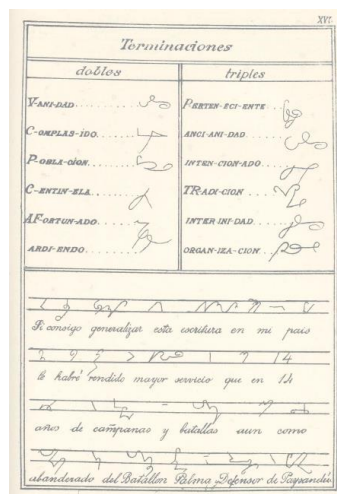 XVI
Terminaciones
dobles
triples
V-ANI-DAD
C-OMPLAS-IDO
P-OBLA-CION
C-ENTIN-ELA
AF-ORTUN-ADO
ARDI-ENDO
PERTEN-ECI-ENTE
ANCI-ANI-DAD
INTEN-CION-ADO
TRADI-CION
INTER INI-DAD
ORGAN-IZA-CION
Si consigo generalizar esta escritura en mi pais
le habré rendido mayor servicio que en 14
años de campañas y batallas aun como
abanderado del Batallon Palma Defensor de Paysandú